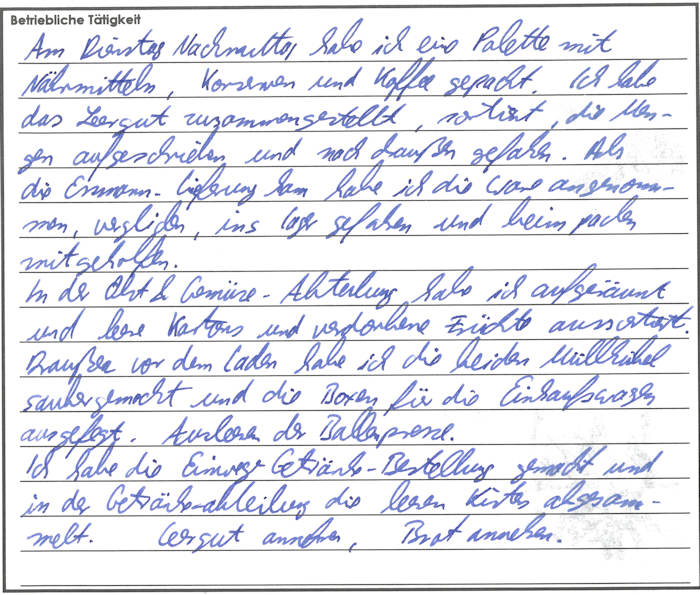 Betriebliche Tätigkeit
Am Dienstag Nachmittag habe ich eine Palette mit
Nährmitteln, Konserven und Kaffee gepackt. Ich habe
das Leergut zusammengestellt, sortiert, die Men-
gen aufgeschrieben und nach draußen gefahren. Als
die Ermann-Lieferung kam habe ich die Ware angenomm-
men, verglichen, ins Lager gefahren und beim packen
mitgeholfen.
In der Obst & Gemüse-Abteilung habe ich aufgeräumt
und leere Kartons und verdorbene Früchte aussortiert.
Draußen vor dem Laden habe ich die beiden Müllkübel
saubergemacht und die Boxen für die Einkaufswagen
ausgefegt. Ausleeren der Ballenpresse.
Ich habe die Einweg-Getränke-Bestellung gemacht und
in der Getränkeabteilung die leeren Kisten abgesam-
melt. Leergut annehmen, Brot annehmen.